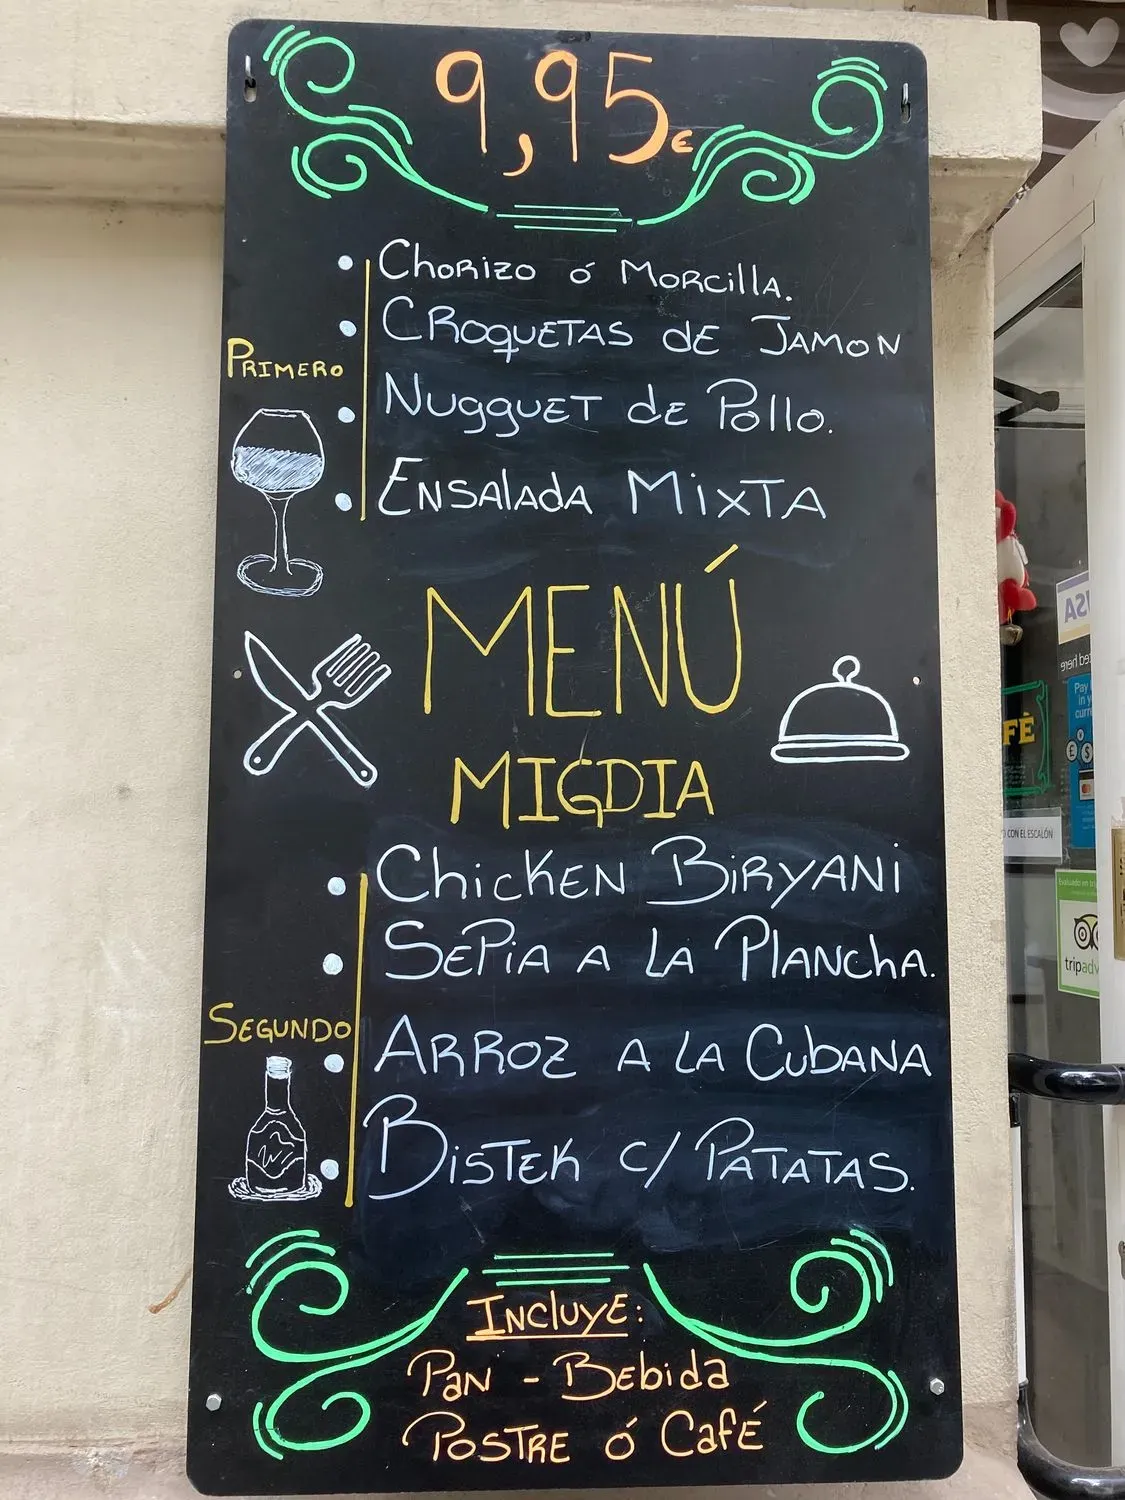 9,95€
Chorizo ó Morcilla.
Croquetas de Jamon
Primero
Nugguet de Pollo.
Ensalada Mixta
MENÚ
MIGDIA
Chicken Biryani
Sepia a la Plancha.
Segundo
Arroz a la Cubana
Bistek c/ Patatas.
Incluye:
Pan - Bebida
Postre ó Café
FÈ
CON EL ESCALÓN
Pay
in y
curr
Evaluado en
tripadv